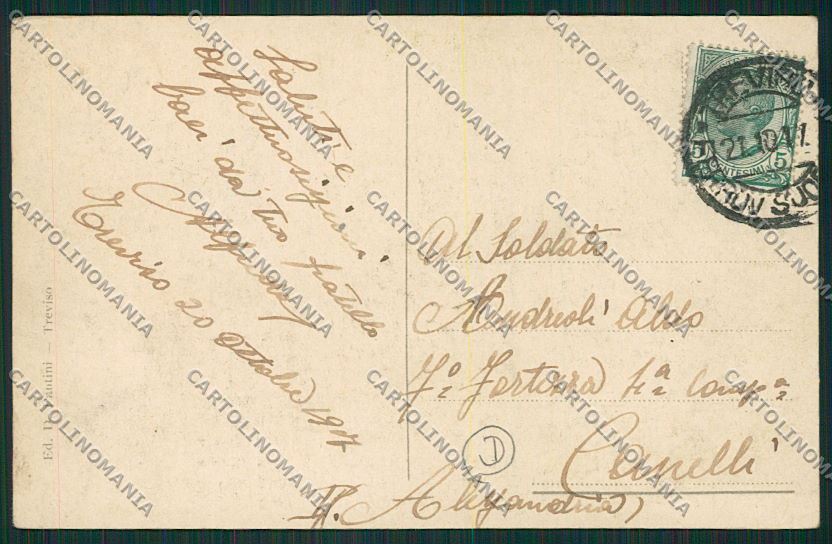 Saluti e
affettuosissimi
baci da tuo fratello
Treviso 20 Ottobre 1917
Al Soldato
Andreoli Aldo
7º Fortezza 4ª Compª
Canelli
(Alessandria)
D
5 CENTESIMI 5
TREVISO
21.10.1
Ed. — Treviso
CARTOLINOMANIA